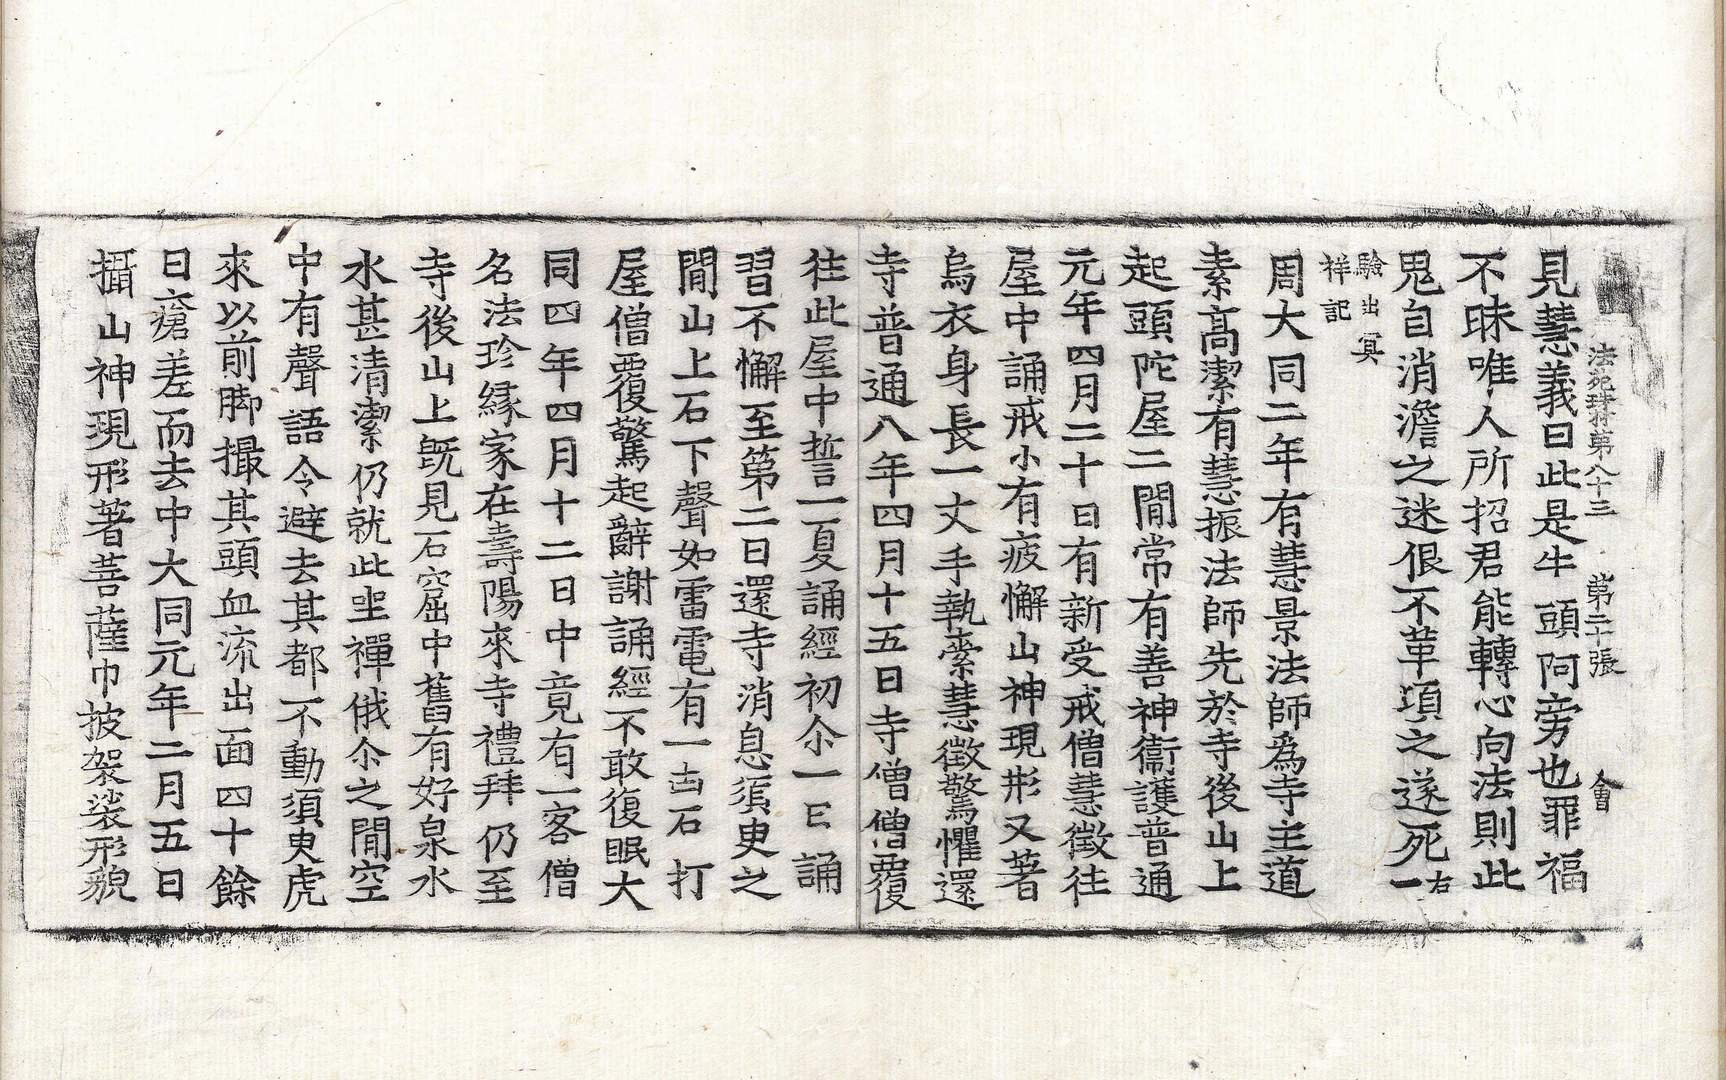 法苑珠林第八十三 第二十張 會
見慧義曰此是牛頭阿旁也罪福
不昧唯人所招君能轉心向法則此
鬼自消澹之迷佷不革項之遂死右一
驗出冥
祥記
周大同二年有慧景法師為寺主道
素高潔有慧振法師先於寺後山上
起頭陀屋二間常有善神衞護普通
元年四月二十日有新受戒僧慧徵往
屋中誦戒小有疲懈山神現形又著
烏衣身長一丈手執索慧徵驚懼還
寺普通八年四月十五日寺僧僧覆
往此屋中誓一夏誦經初尒一日誦
習不懈至第二日還寺消息須臾之
間山上石下聲如雷電有一古石打
屋僧覆驚起辭謝誦經不敢復眠大
同四年四月十二日中竟有一客僧
名法珍緣家在壽陽來寺禮拜仍至
寺後山上旣見石窟中舊有好泉水
水甚清潔仍就此坐禪俄尒之間空
中有聲語令避去其都不動須臾虎
來以前脚撮其頭血流出面四十餘
日瘡差而去中大同元年二月五日
攝山神現形著菩薩巾披袈裟形貌